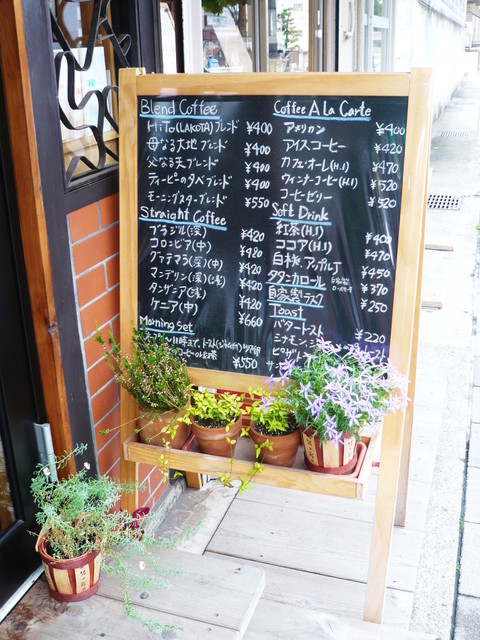 Blend Coffee
HiTo(LAKOTA)ブレンド ¥400
母なる大地ブレンド ¥400
父なる天ブレンド ¥400
ティーピーの夕べブレンド ¥400
モーニングスターブレンド ¥550
Straight Coffee
ブラジル(深) ¥420
コロンビア(中) ¥420
グァテマラ(深)(中) ¥420
マンデリン(深)(浅) ¥420
タンザニア(浅) ¥420
ケニア(中) ¥660
Morning Set
¥350
Coffee A La Carte
アメリカン ¥400
アイスコーヒー ¥420
カフェ・オーレ(H.I) ¥470
ウィンナーコーヒー(H.I) ¥520
コーヒーゼリー ¥520
Soft Drink
紅茶(H.I) ¥400
ココア(H.I) ¥470
¥450
タタンカロール ¥370
自家製ラスク ¥250
Toast
バタートースト ¥220
シナモン
ピザト